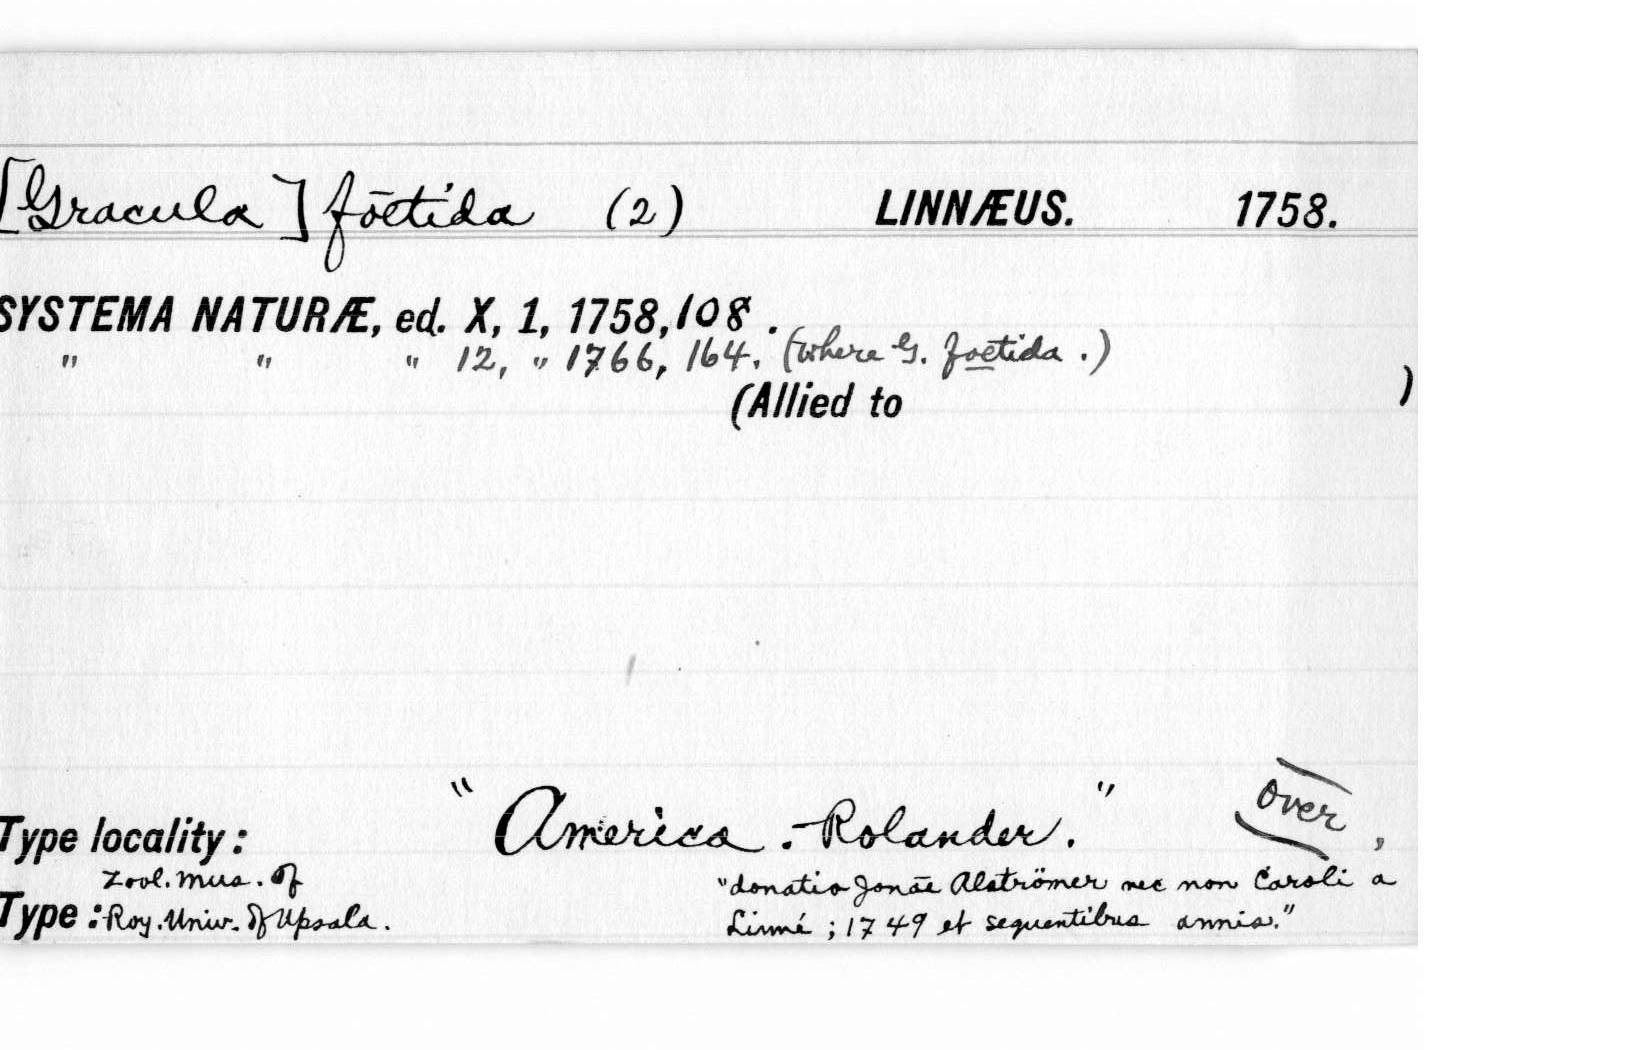 [Gracula] fōetida (2) LINNÆUS. 1758.
SYSTEMA NATURÆ, ed. X, 1, 1758, 108.
" " " 12, " 1766, 164. (where G. foetida.)
(Allied to )
Type locality: "America.-Rolander." over,
Zool. Mus. of
Type: Roy. Univ. of Upsala.
"donatio Jonāe Alströmer nec non Caroli a
Linné; 1749 et sequentibus annis."